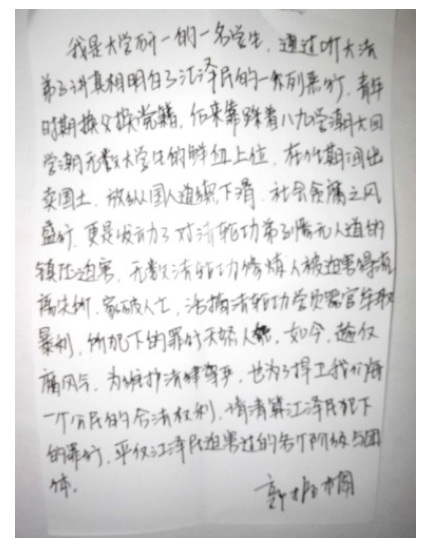 我是大学研一的一名学生，通过听大法
弟子讲真相明白了江泽民的一系列恶行，青年
时期换父换党籍，后来靠踩着八九学潮大回
学潮无数大学生的鲜血上位，在位期间出
卖国土，放纵国人道德下滑，社会贪腐之风
盛行，更是发动了对法轮功弟子惨无人道的
镇压迫害，无数法轮功修炼人被迫害得流
离失所，家破人亡，活摘法轮功学员器官牟取
暴利，所犯下的罪行天怒人怨，如今，趁反
腐风气，为维护法律尊严，也为了捍卫我们每
一个公民的合法权利，请清算江泽民犯下
的罪行，平反江泽民迫害过的各个阶级与团
体。